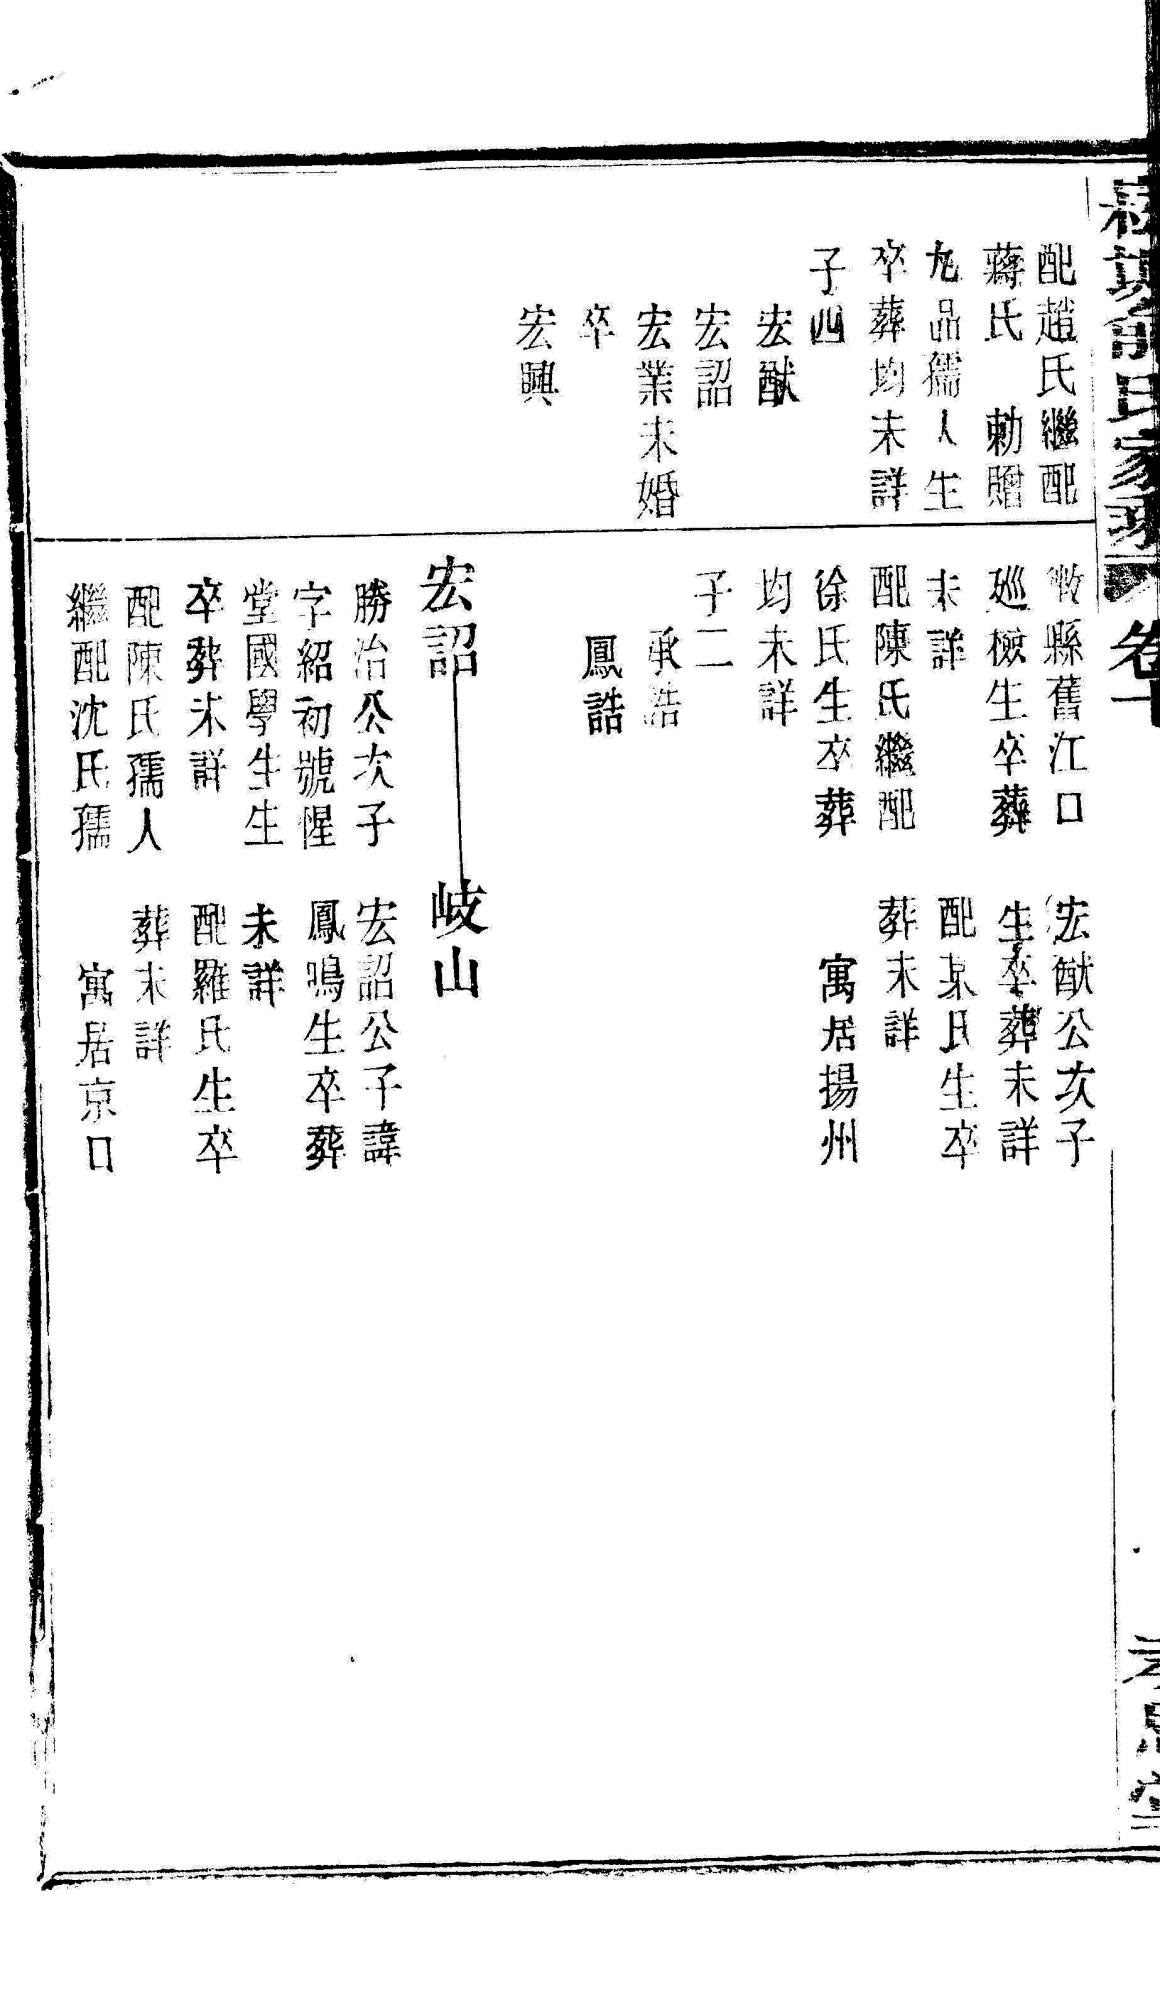 氏家乘
卷十
配趙氏繼配
蔣氏　勅贈
九品孺人生
卒葬均未詳
子四
宏猷
宏詔
宏業未婚
卒
宏興
縣舊江口
廵檢生卒葬
未詳
配陳氏繼配
徐氏生卒葬
均未詳
子二
承誥
鳳誥
宏猷公次子
生卒葬未詳
配某氏生卒
葬未詳
寓居揚州
宏詔
勝治公次子
字紹初號惺
堂國學生生
卒葬未詳
配陳氏孺人
繼配沈氏孺
岐山
宏詔公子諱
鳳鳴生卒葬
未詳
配羅氏生卒
葬未詳
寓居京口